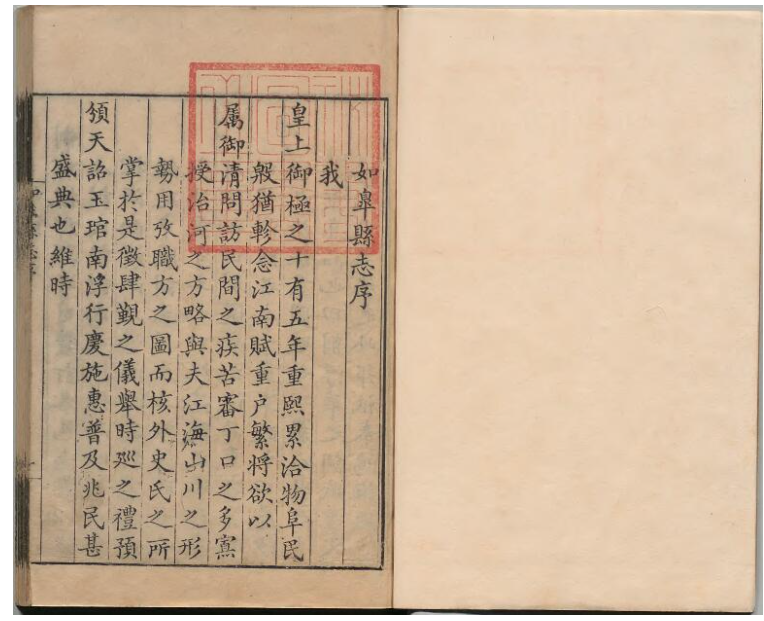 如臯縣志序
我
皇上御極之十有五年重熙累洽物阜民
殷猶軫念江南賦重户繁将欲以
属御清問訪民間之疾苦審丁口之多寡
授治河之方略與夫江海山川之形
勢用攷職方之圖而核外史氏之所
掌於是徵肆覲之儀舉時廵之禮預
頒天詔玉琯南浮行慶施惠普及兆民甚
盛典也維時
縣志序